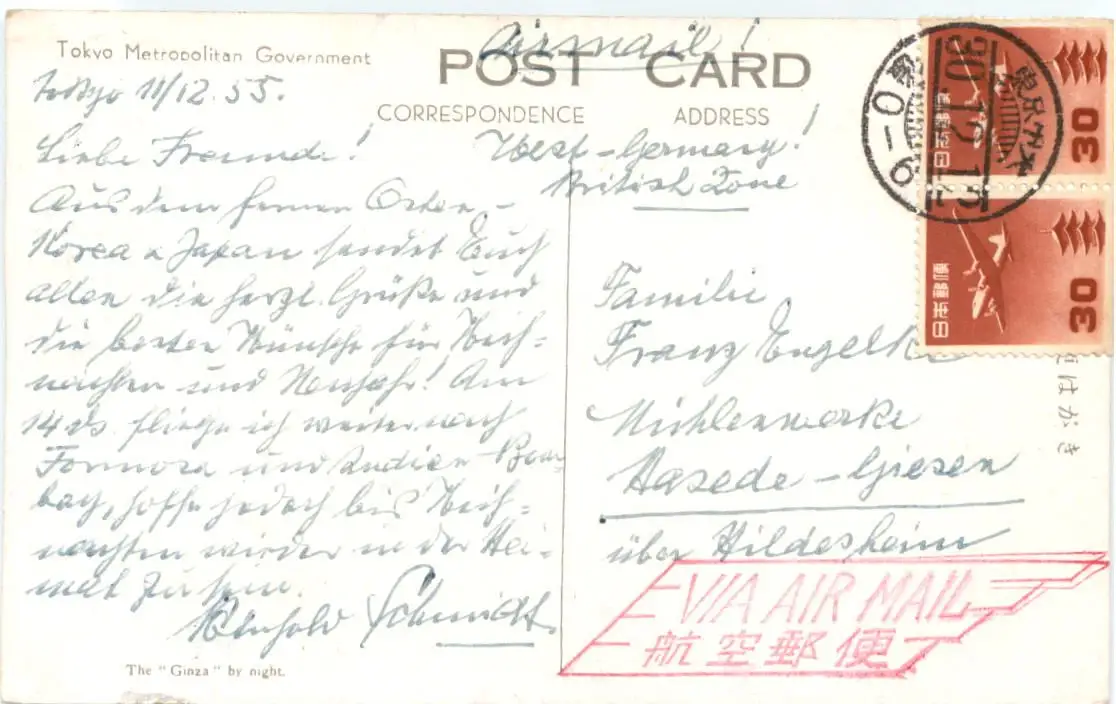 Tokyo Metropolitan Government
POST CARD
CORRESPONDENCE
ADDRESS
Airmail!
Tokyo 11/12.55.
Liebe Freunde!
Aus dem fernen Osten –
Korea u Japan sendet Euch
allen die herzl. Grüße und
die besten Wünsche für Weih=
nachten und Neujahr! Am
14 ds. fliege ich weiter nach
Formosa und Indien Bom=
bay, hoffe jedoch bis Weih=
nachten wieder in der Hei=
mat zu sein.
Reinhold Schmidt.
The "Ginza" by night.
West-Germany!
British Zone
Familie
Franz Engelke
Mühlenwerke
Hasede-Giesen
über Hildesheim
VIA AIR MAIL
航空郵便
日本郵便
30
日本郵便
30
30.12.13
0-6
はがき